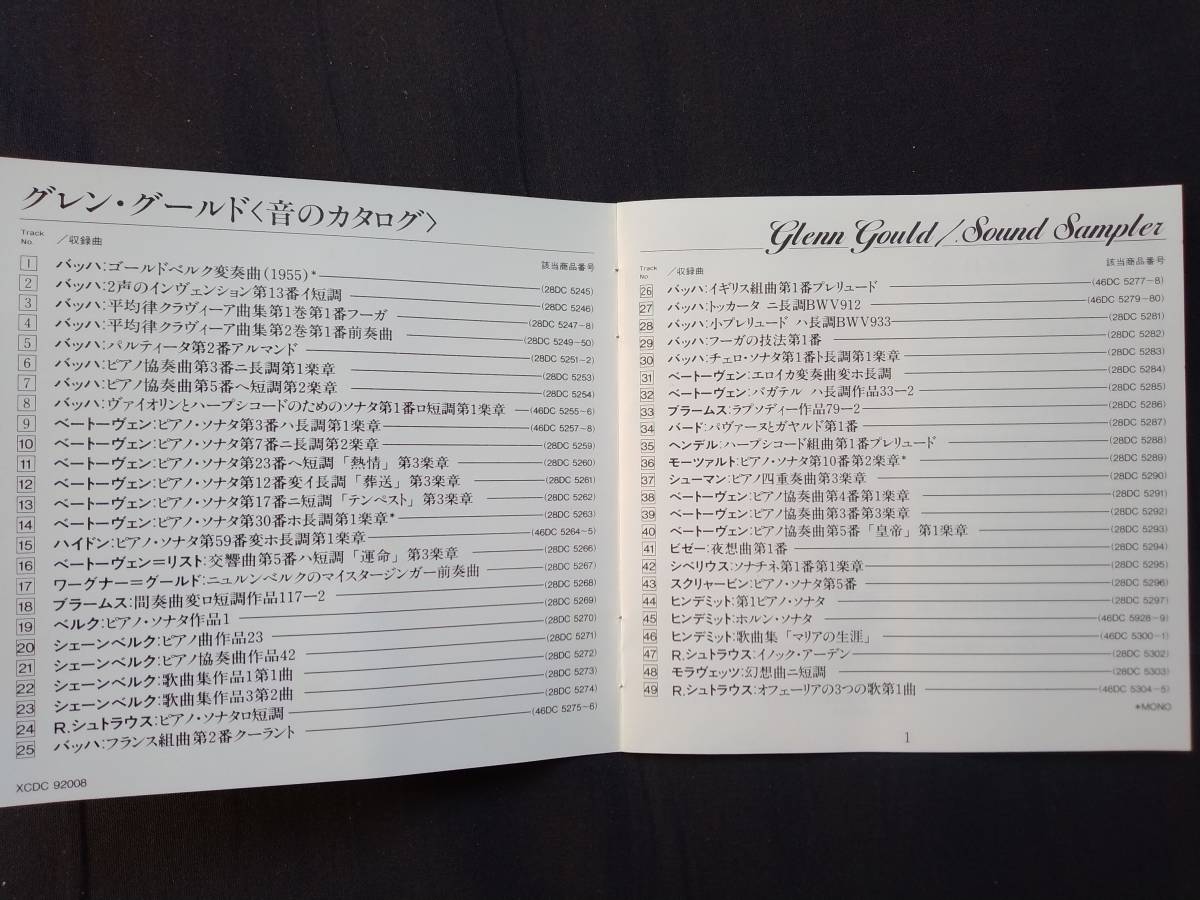 グレン・グールド〈音のカタログ〉
Track No. /収録曲 該当商品番号
1 バッハ:ゴールドベルク変奏曲(1955)* (28DC 5245)
2 バッハ:2声のインヴェンション第13番イ短調 (28DC 5246)
3 バッハ:平均律クラヴィーア曲集第1巻第1番フーガ (28DC 5247-8)
4 バッハ:平均律クラヴィーア曲集第2巻第1番前奏曲 (28DC 5249-50)
5 バッハ:パルティータ第2番アルマンド (28DC 5251-2)
6 バッハ:ピアノ協奏曲第3番ニ長調第1楽章 (28DC 5253)
7 バッハ:ピアノ協奏曲第5番ヘ短調第2楽章 (28DC 5254)
8 バッハ:ヴァイオリンとハープシコードのためのソナタ第1番ロ短調第1楽章 (46DC 5255-6)
9 ベートーヴェン:ピアノ・ソナタ第3番ハ長調第1楽章 (46DC 5257-8)
10 ベートーヴェン:ピアノ・ソナタ第7番ニ長調第2楽章 (28DC 5259)
11 ベートーヴェン:ピアノ・ソナタ第23番ヘ短調「熱情」第3楽章 (28DC 5260)
12 ベートーヴェン:ピアノ・ソナタ第12番変イ長調「葬送」第3楽章 (28DC 5261)
13 ベートーヴェン:ピアノ・ソナタ第17番ニ短調「テンペスト」第3楽章 (28DC 5262)
14 ベートーヴェン:ピアノ・ソナタ第30番ホ長調第1楽章* (28DC 5263)
15 ハイドン:ピアノ・ソナタ第59番変ホ長調第1楽章 (46DC 5264-5)
16 ベートーヴェン=リスト:交響曲第5番ハ短調「運命」第3楽章 (28DC 5266)
17 ワーグナー=グールド:ニュルンベルクのマイスタージンガー前奏曲 (28DC 5267)
18 ブラームス:間奏曲変ロ短調作品117-2 (28DC 5268)
19 ベルク:ピアノ・ソナタ作品1 (28DC 5269)
20 シェーンベルク:ピアノ曲作品23 (28DC 5270)
21 シェーンベルク:ピアノ協奏曲作品42 (28DC 5271)
22 シェーンベルク:歌曲集作品1第1曲 (28DC 5272)
23 シェーンベルク:歌曲集作品3第2曲 (28DC 5273)
24 R.シュトラウス:ピアノ・ソナタロ短調 (28DC 5274)
25 バッハ:フランス組曲第2番クーラント (46DC 5275-6)
XCDC 92008
Glenn Gould/Sound Sampler
Track No /収録曲 該当商品番号
26 バッハ:イギリス組曲第1番プレリュード (46DC 5277-8)
27 バッハ:トッカータ ニ長調BWV912 (46DC 5279-80)
28 バッハ:小プレリュード ハ長調BWV933 (28DC 5281)
29 バッハ:フーガの技法第1番 (28DC 5282)
30 バッハ:チェロ・ソナタ第1番ト長調第1楽章 (28DC 5283)
31 ベートーヴェン:エロイカ変奏曲変ホ長調 (28DC 5284)
32 ベートーヴェン:バガテル ハ長調作品33-2 (28DC 5285)
33 ブラームス:ラプソディー作品79-2 (28DC 5286)
34 バード:パヴァーヌとガヤルド第1番 (28DC 5287)
35 ヘンデル:ハープシコード組曲第1番プレリュード (28DC 5288)
36 モーツァルト:ピアノ・ソナタ第10番第2楽章* (28DC 5289)
37 シューマン:ピアノ四重奏曲第3楽章 (28DC 5290)
38 ベートーヴェン:ピアノ協奏曲第4番第1楽章 (28DC 5291)
39 ベートーヴェン:ピアノ協奏曲第3番第3楽章 (28DC 5292)
40 ベートーヴェン:ピアノ協奏曲第5番「皇帝」第1楽章 (28DC 5293)
41 ビゼー:夜想曲第1番 (28DC 5294)
42 シベリウス:ソナチネ第1番第1楽章 (28DC 5295)
43 スクリャービン:ピアノ・ソナタ第5番 (28DC 5296)
44 ヒンデミット:第1ピアノ・ソナタ (28DC 5297)
45 ヒンデミット:ホルン・ソナタ (46DC 5928-9)
46 ヒンデミット:歌曲集「マリアの生涯」 (46DC 5300-1)
47 R.シュトラウス:イノック・アーデン (28DC 5302)
48 モラヴェッツ:幻想曲ニ短調 (28DC 5303)
49 R.シュトラウス:オフェーリアの3つの歌第1曲 (46DC 5304-5)
*MONO
1